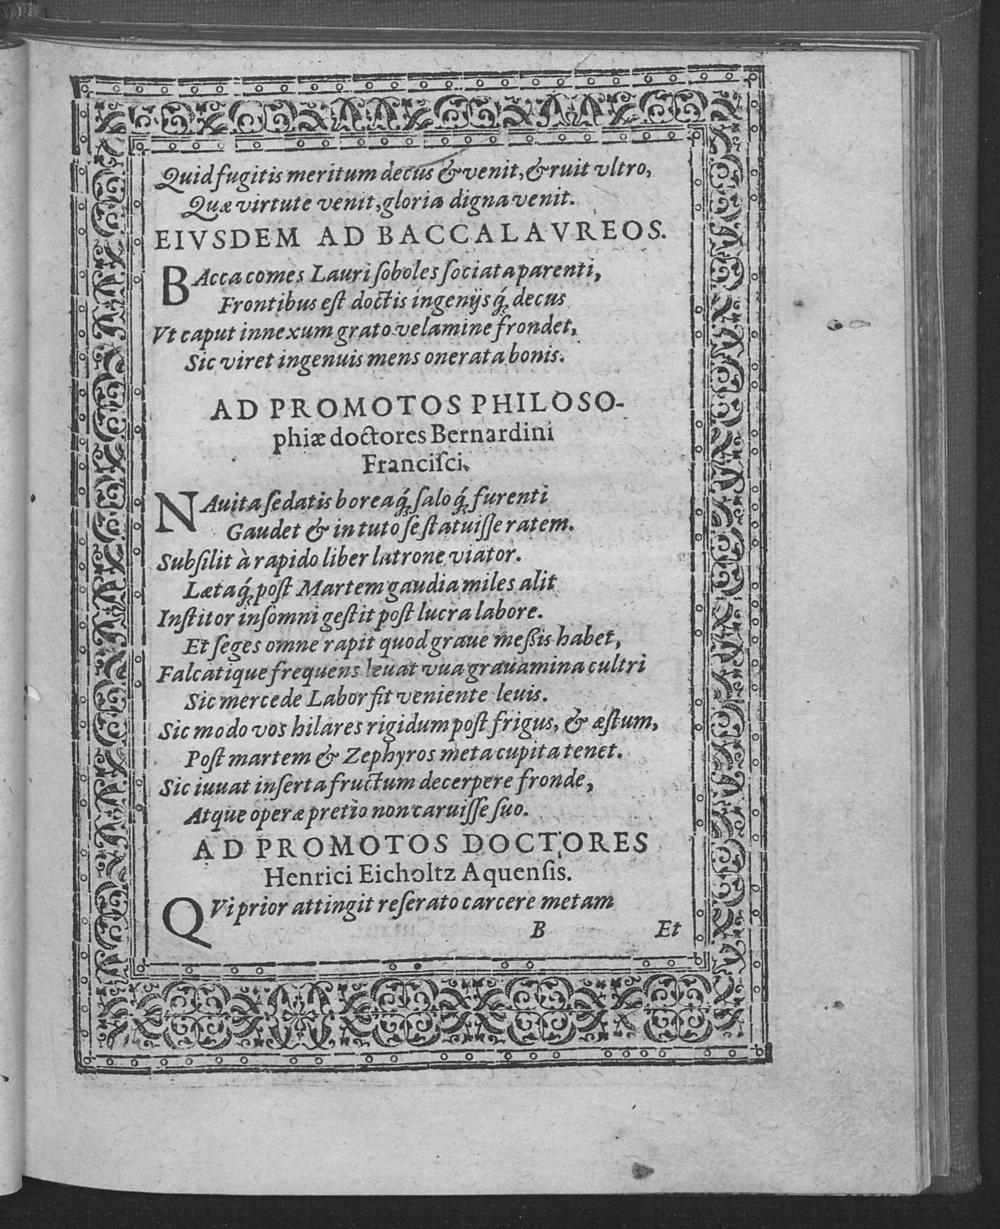 Quid fugitis meritum decus & venit, & ruit vltro,
Quæ virtute venit, gloria digna venit.
EIVSDEM AD BACCALAVREOS.
BAcca comes Lauri ſoboles ſociata parenti,
Frontibus eſt doctis ingenijsq́; decus
Vt caput innexum grato velamine frondet,
Sic viret ingenuis mens onerata bonis.
AD PROMOTOS PHILOSO-
phiæ doctores Bernardini
Franciſci.
NAuita ſedatis boreaq́; ſaloq́; furenti
Gaudet & in tuto ſe ſtatuiſſe ratem.
Subſilit à rapido liber latrone viator.
Lætaq́; poſt Martem gaudia miles alit
Inſtitor inſomni geſtit poſt lucra labore.
Et ſeges omne rapit quod graue meßis habet,
Falcatique frequens leuat vua grauamina cultri
Sic mercede Labor fit veniente leuis.
Sic modo vos hilares rigidum poſt frigus, & æſtum,
Poſt martem & Zephyros meta cupita tenet.
Sic iuuat inſerta fructum decerpere fronde,
Atque operæ pretio non caruiſſe ſuo.
AD PROMOTOS DOCTORES
Henrici Eicholtz Aquenſis.
QVi prior attingit reſerato carcere metam
B Et